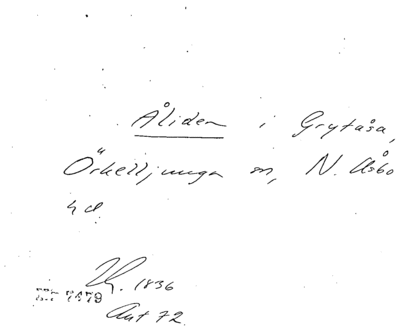 Åliden i Grytåsa,
Örkelljunga sn, N. Åsbo
hd.
1836
7479
Aut 72.